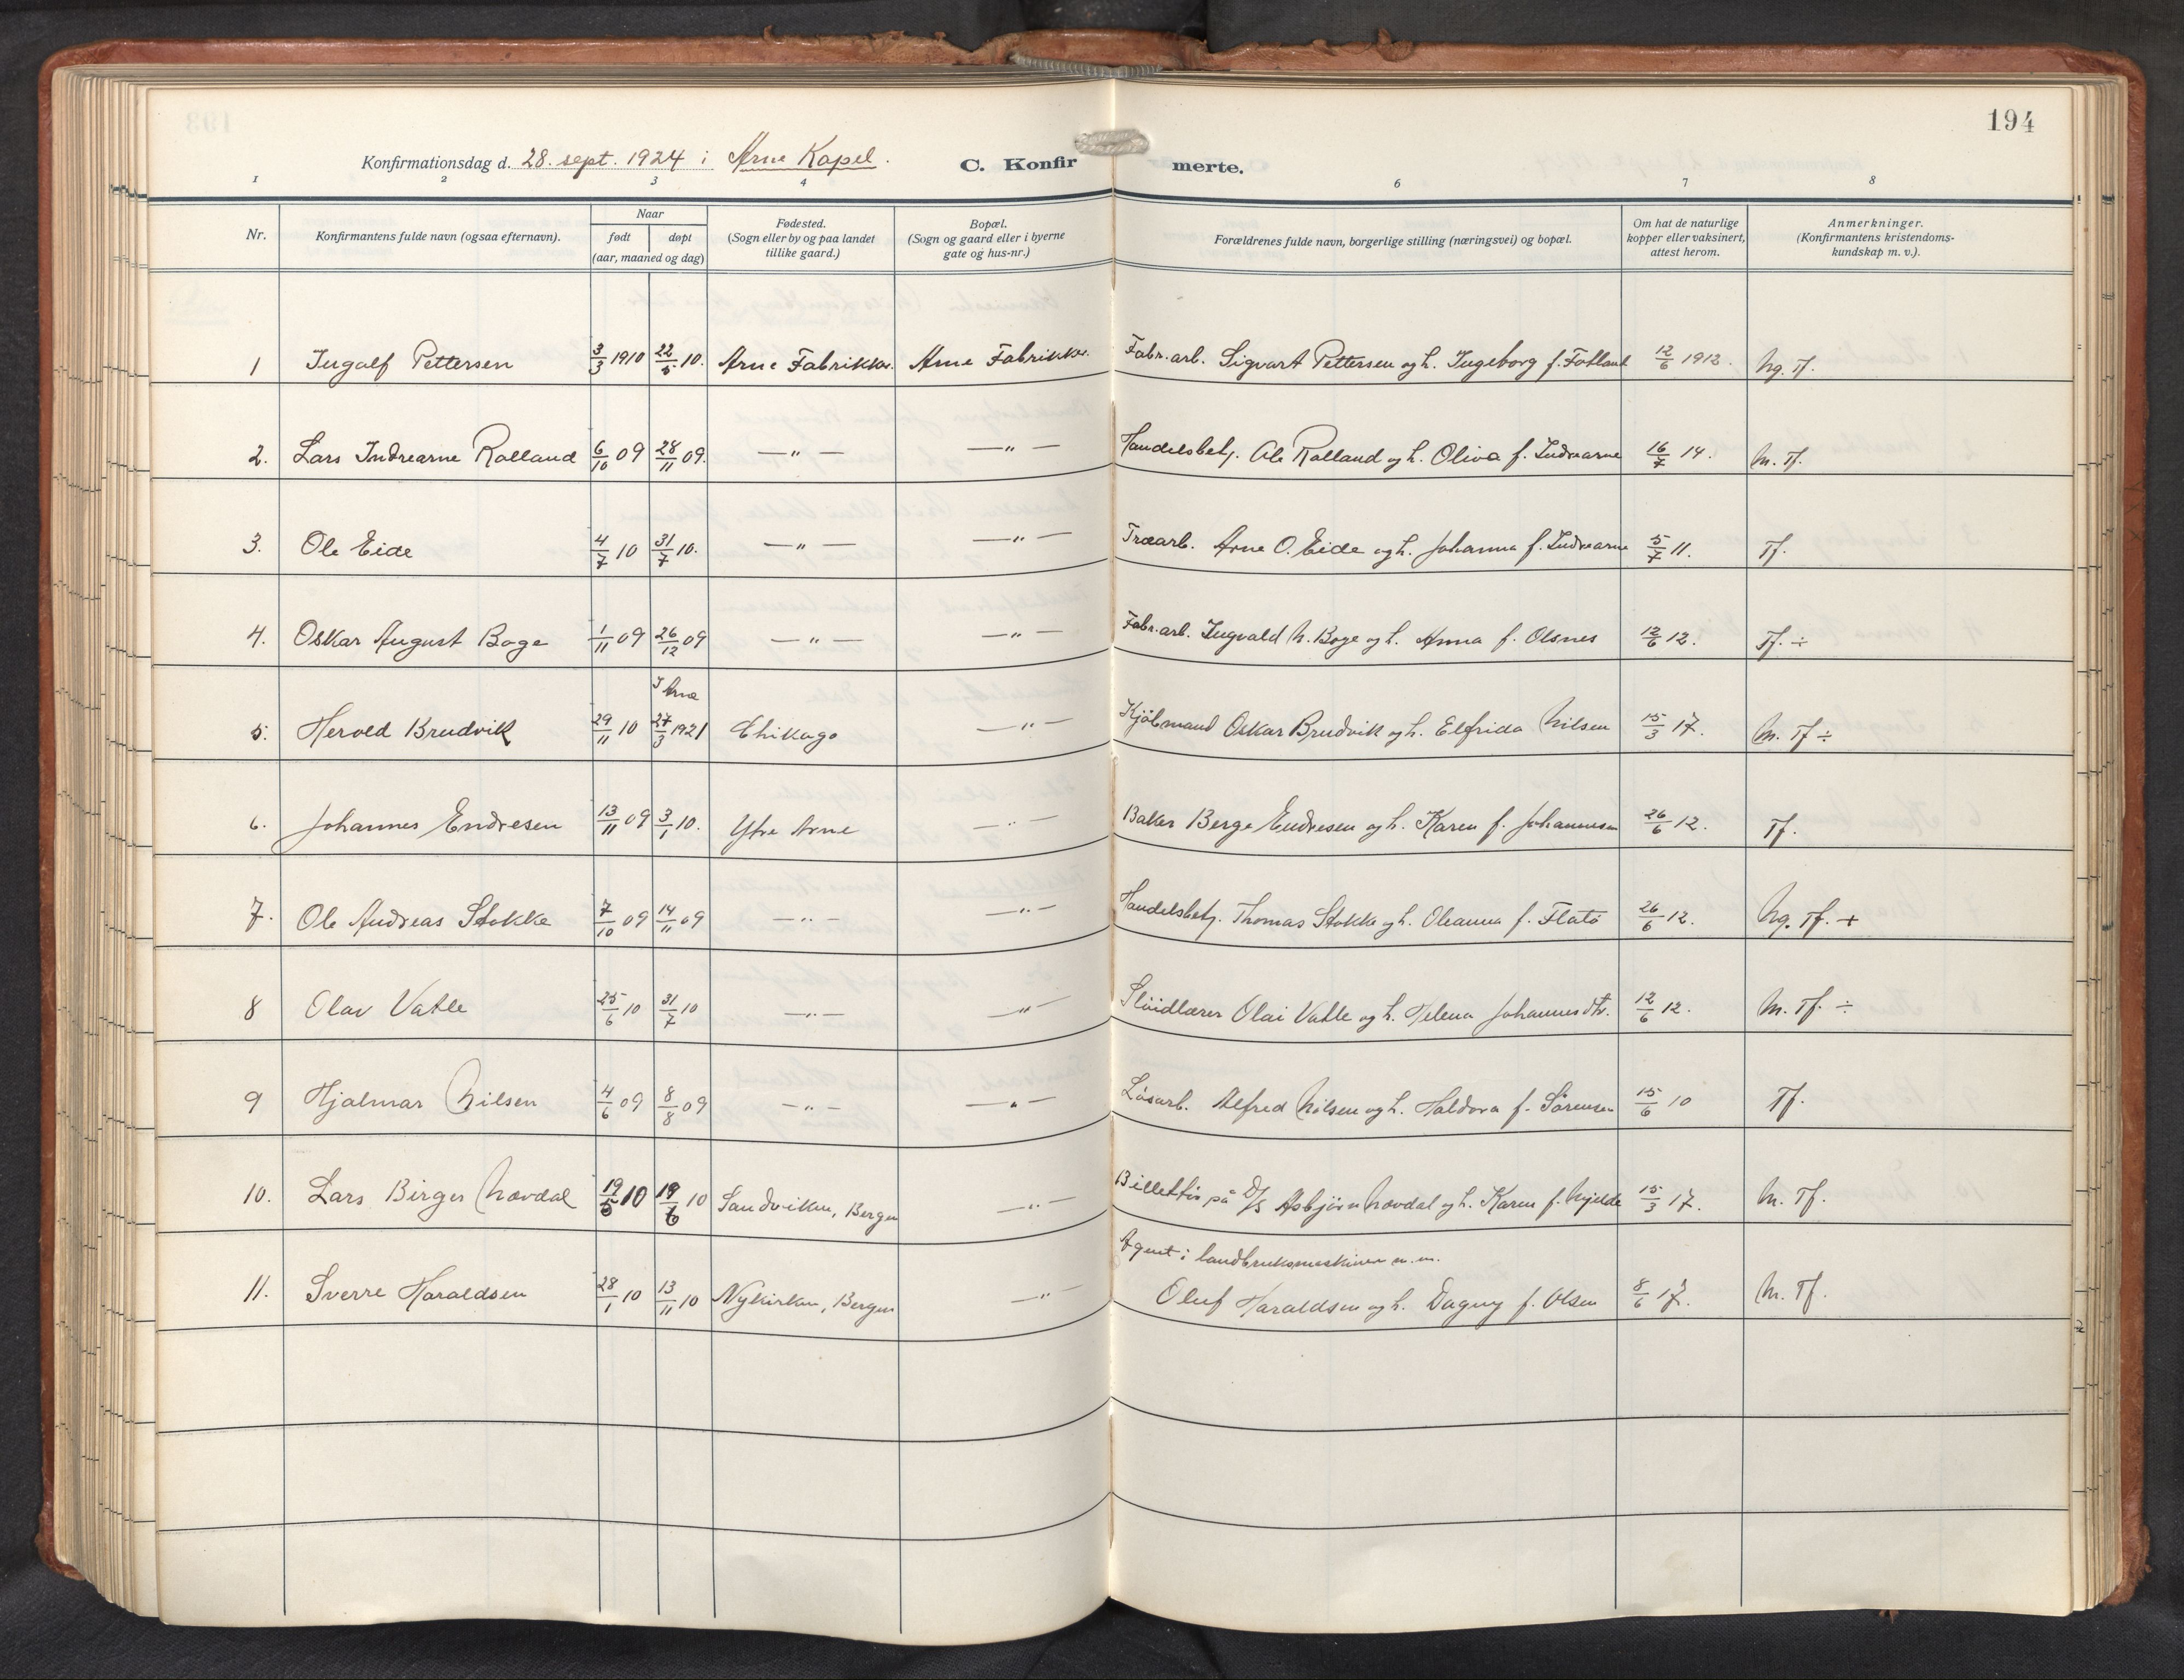 194
Konfirmationsdag d. 28. sept. 1924 i Arne Kapel.
C. Konfirmerte.
1 2 3 4 6 7 8
Nr.
Konfirmantens fulde navn (ogsaa efternavn).
Naar
født døpt
(aar, maaned og dag)
Fødested.
(Sogn eller by og paa landet
tillike gaard.)
Bopæl.
(Sogn og gaard eller i byerne
gate og hus-nr.)
Forældrenes fulde navn, borgerlige stilling (næringsvei) og bopæl.
Om hat de naturlige
kopper eller vaksinert,
attest herom.
Anmerkninger.
(Konfirmantens kristendoms-
kundskap m. v.).
1 Ingalf Pettersen 3/3 1910 22/5 10. Arne Fabrikker. Arne Fabrikker. Fabr. arb. Sigvart Pettersen og h. Ingeborg f. Fotland 12/6 1912. Ng. Tf.
2. Lars Indrearne Rolland 6/10 09 28/11 09. —"— —"— Handelsbetj. Ole Rolland og h. Oliva f. Indrearne 16/7 14. M. Tf.
3. Ole Eide 4/7 10 31/7 10. —"— —"— Træarb. Arne O. Eide og h. Johanna f. Indrearne 5/7 11. Tf.
4. Oskar August Boge 1/11 09 26/12 09 —"— —"— Fabr. arb. Ingvald N. Boge og h. Anna f. Olsnes 12/6 12. Tf. ÷
I Arne
5. Herold Brudvik 29/11 10 27/3 1921 Chikago —"— Kjøbmand Oskar Brudvik og h. Elfrida Nilsen 15/3 17. M. Tf ÷
6. Johannes Endresen 13/11 09 3/1 10. Ytre Arne —"— Baker Berge Endresen og h. Karen f. Johannesen 26/6 12. Tf.
7. Ole Andreas Stokke 7/10 09 14/11 09 —"— —"— Handelsbetj. Thomas Stokke og h. Oleanna f. Flatø 26/6 12. Ng. Tf. +
8 Olav Vatle 25/6 10 31/7 10 —"— —"— Slöidlærer Olai Vatle og h. Helena Johannesdtr. 12/6 12. M. Tf. ÷
9 Hjalmar Nilsen 4/6 09 8/8 09 —"— —"— Løsarb. Alfred Nilsen og h. Haldora f. Sørensen 15/6 10 Tf.
10. Lars Birger Nævdal 19/5 10 19/6 10 Sandviken, Bergen —"— Billettör på D/S Asbjørn Nævdal og h. Karen f. Mjelde 15/3 17. M. Tf.
Agent i landbruksmaskiner m. m.
11. Sverre Haraldsen 28/1 10 13/11 10 Nykirken, Bergen —"— Oluf Haraldsen og h. Dagny f. Olsen 8/6 17. M. Tf.